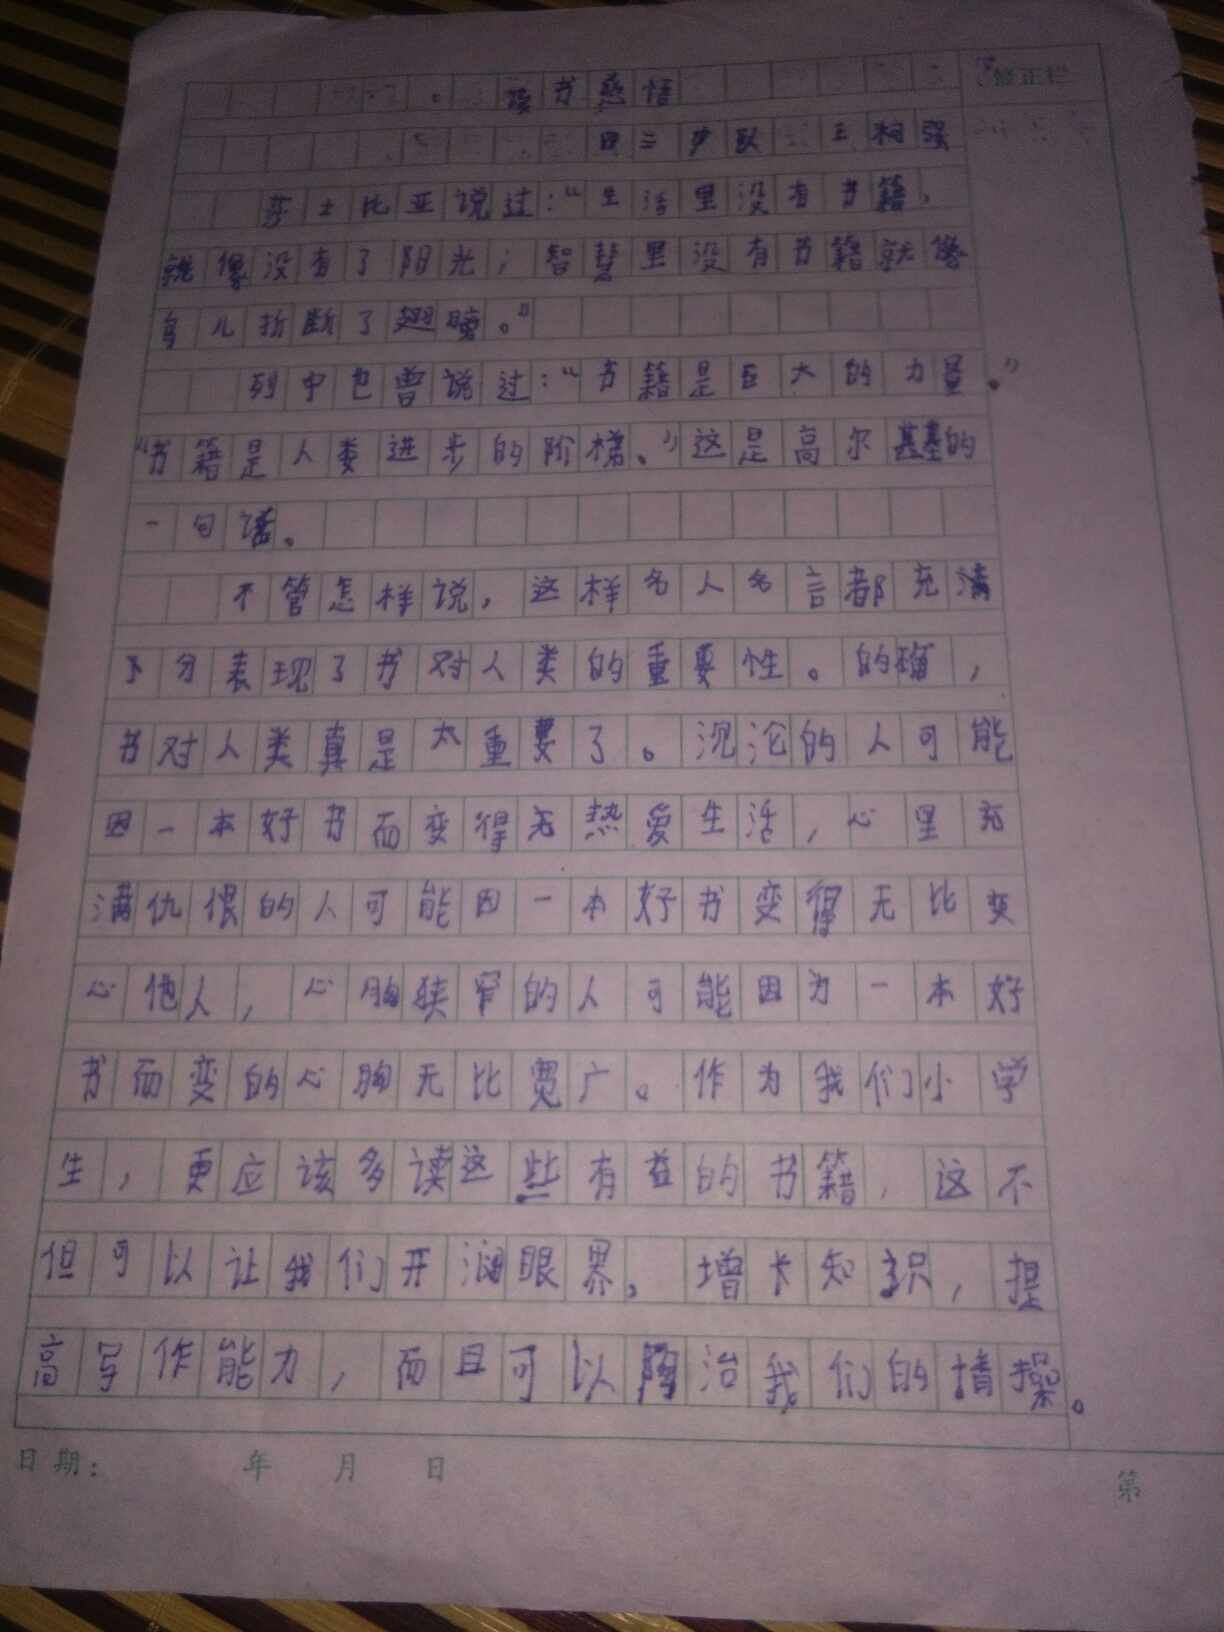 读书感悟
修正栏
四三少队 王柯强
莎士比亚说过:“生活里没有书籍,
就像没有了阳光;智慧里没有书籍就像
鸟儿折断了翅膀。”
列宁也曾说过:“书籍是巨大的力量。”
“书籍是人类进步的阶梯。”这是高尔基的
一句话。
不管怎样说,这样名人名言都充满
分表现了书对人类的重要性。的确,
书对人类真是太重要了。沉沦的人可能
因一本好书而变得无热爱生活,心里充
满仇恨的人可能因一本好书变得无比变
心他人,心胸狭窄的人可能因为一本好
书而变的心胸无比宽广。作为我们小学
生,更应该多读这些有益的书籍,这不
但可以让我们开阔眼界。增长知识,提
高写作能力,而且可以陶冶我们的情操。
日期: 年 月 日
第